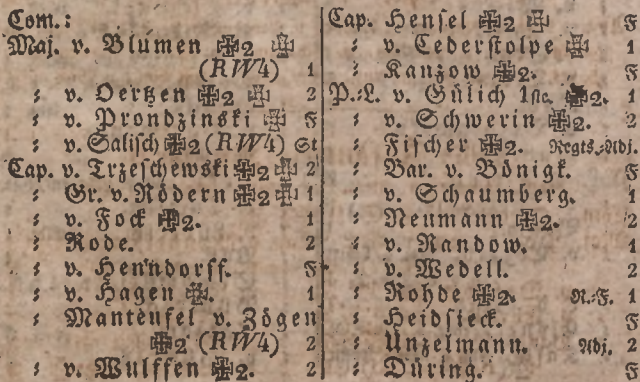 Com.:
Maj. v. Blumen ✠2 ✠
(RW4) 1
: v. Oertzen ✠2 ✠ 2
: v. Prondzinski ✠ F
: v. Salisch ✠2 (RW4) St
Cap. v. Trzeschewski ✠2 ✠ 2
: Gr. v. Rödern ✠2 ✠ 1
: v. Fock ✠2. 1
: Rode. 2
: v. Henndorff. F
: v. Hagen ✠. 1
: Manteufel v. Zögen
✠2 (RW4) 2
: v. Wulffen ✠2. 2
Cap. Hensel ✠2 ✠ F
: v. Cederstolpe ✠ 1
: Kanzow ✠2. F
P.-L. v. Gülich 1ste. ✠2. 1
: v. Schwerin ✠2. 2
: Fischer ✠2. Regts.-Adj.
: Bar. v. Bönigk. F
: v. Schaumberg. 1
: Neumann ✠2. 2
: v. Randow. 1
: v. Wedell. 2
: Rohde ✠2. R.-F. 1
: Heidsieck. F
: Unzelmann. Adj. 2
: Düring. F